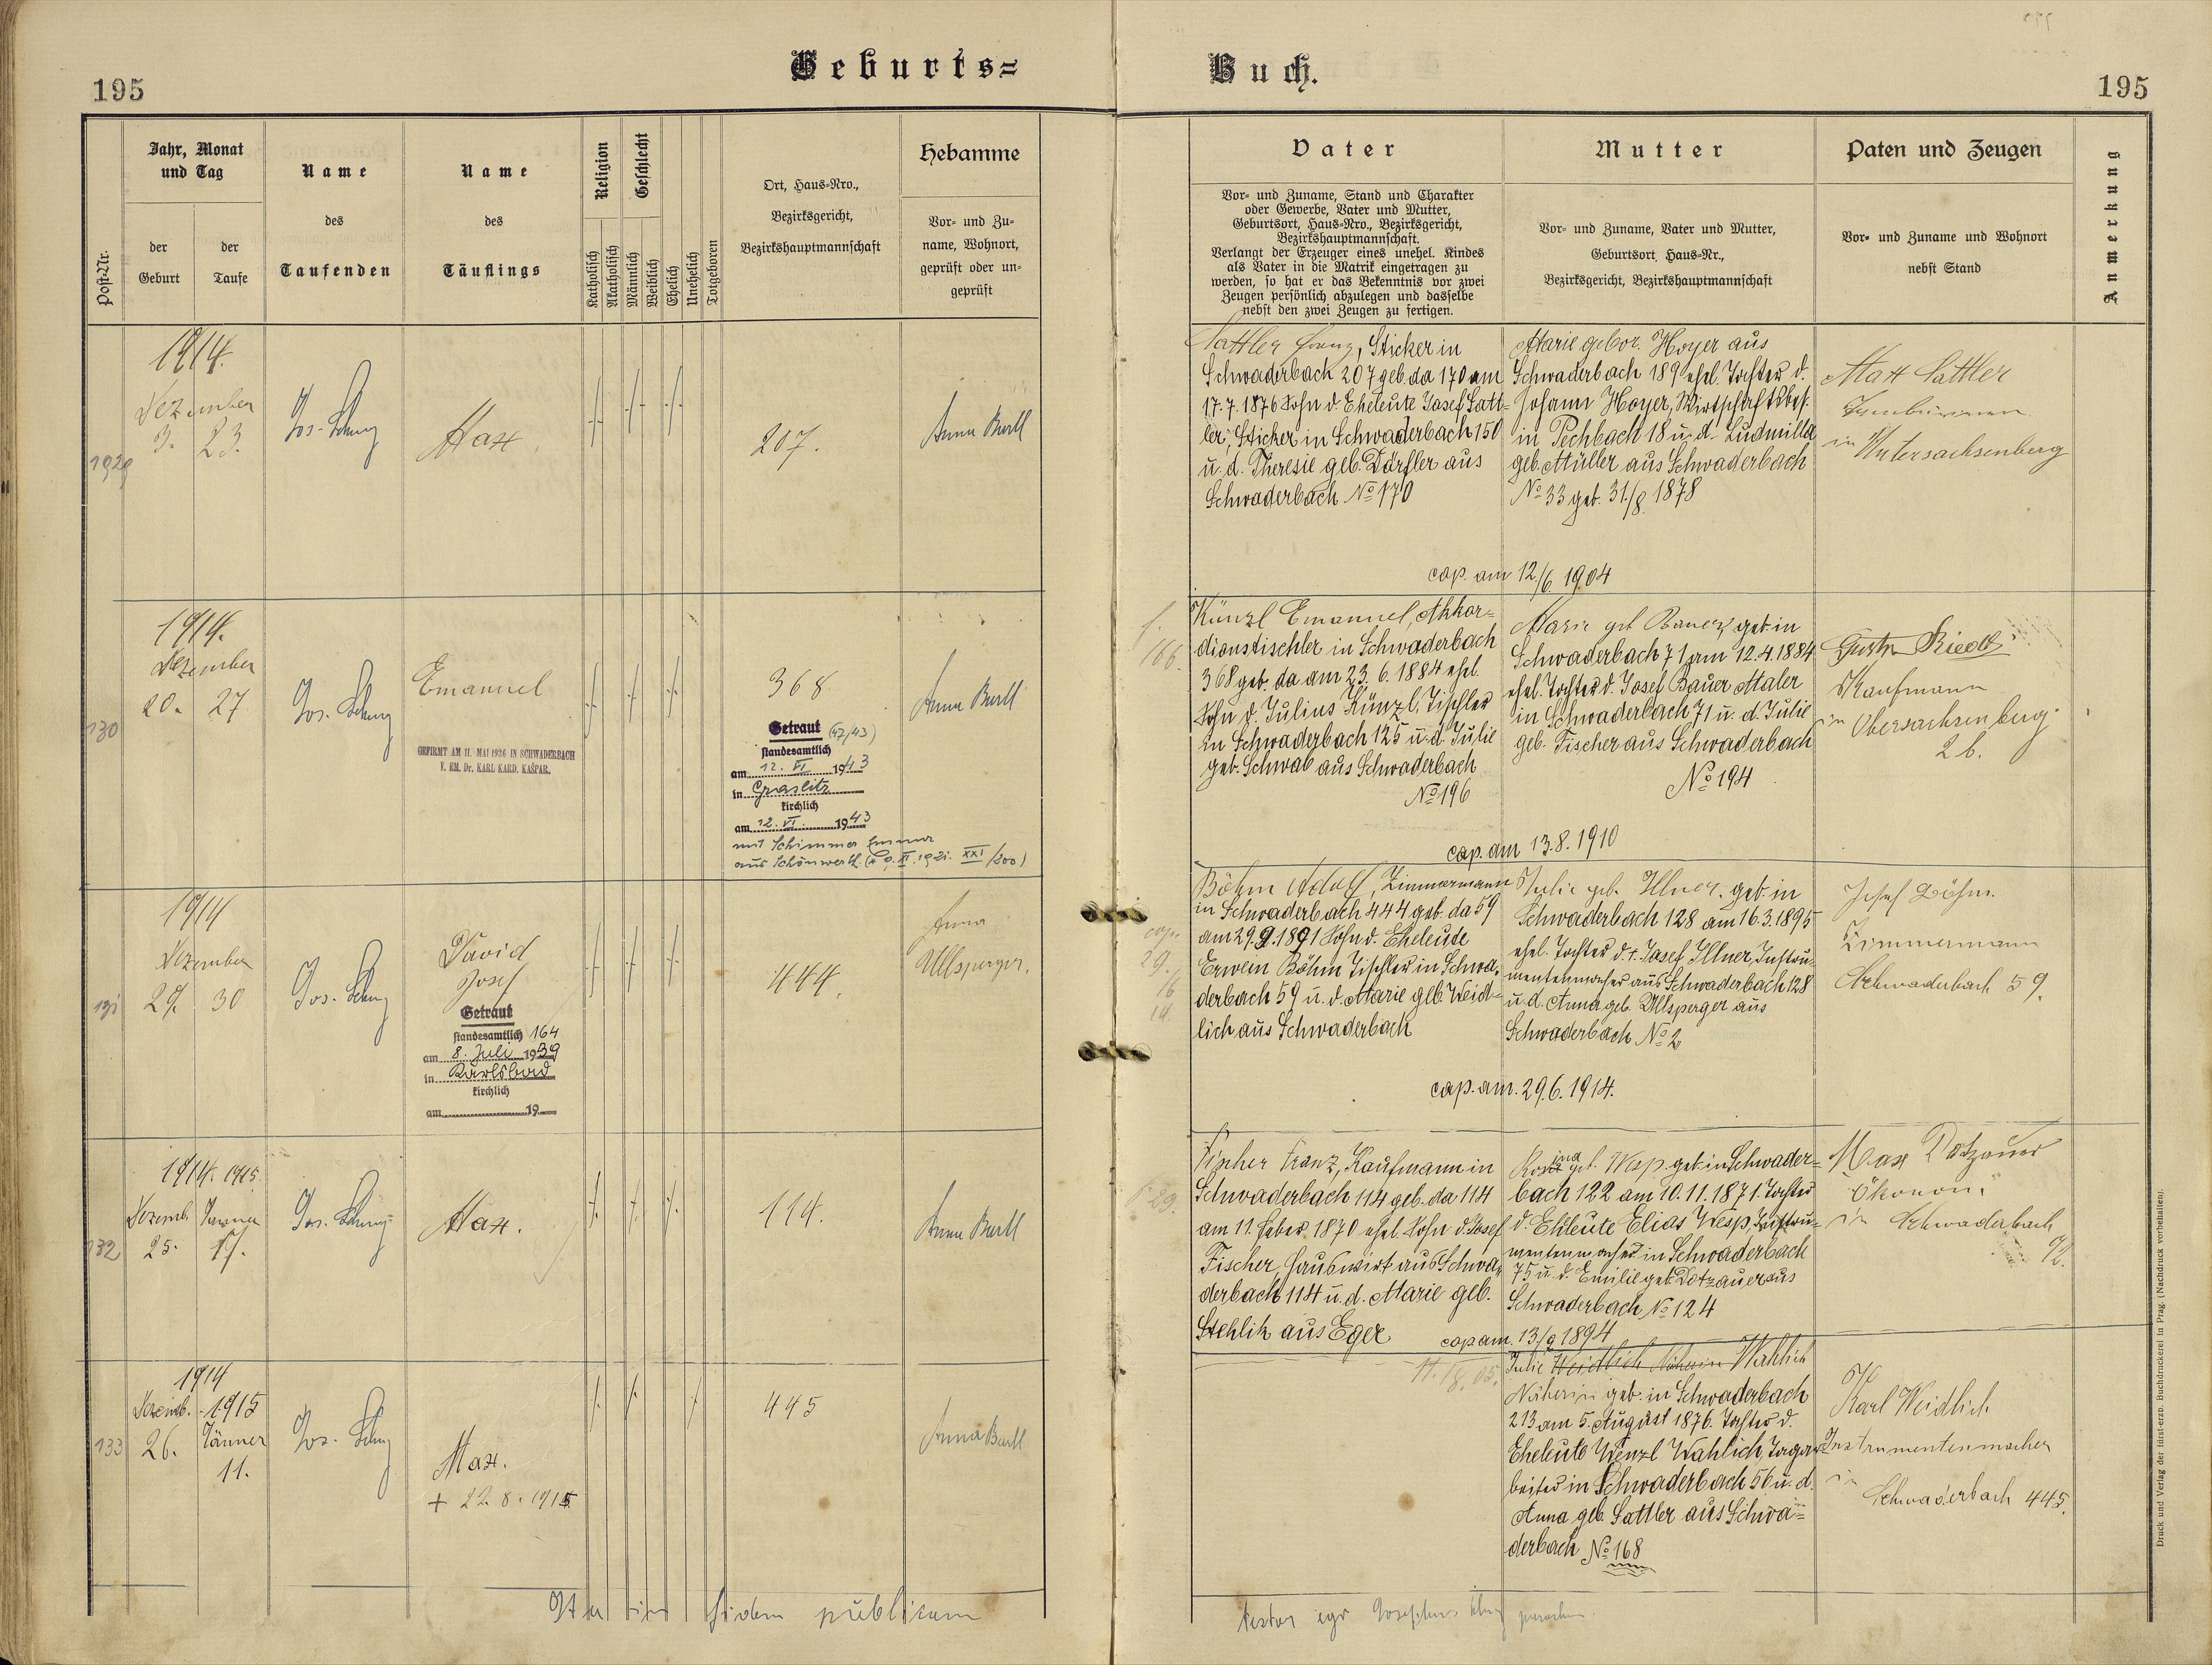 195
Geburts=
Buch.
195
Post-Nr.
Jahr, Monat
und Tag
der
Geburt
der
Taufe
Name
des
Taufenden
Name
des
Täuflings
Religion
Katholisch
Akatholisch
Geschlecht
Männlich
Weiblich
Ehelich
Unehelich
Totgeboren
Ort, Haus-Nro.,
Bezirksgericht,
Bezirkshauptmannschaft
Hebamme
Vor- und Zu-
name, Wohnort,
geprüft oder un-
geprüft
Vater
Vor- und Zuname, Stand und Charakter
oder Gewerbe, Vater und Mutter,
Geburtsort, Haus-Nro., Bezirksgericht,
Bezirkshauptmannschaft.
Verlangt der Erzeuger eines unehel. Kindes
als Vater in die Matrik eingetragen zu
werden, so hat er das Bekenntnis vor zwei
Zeugen persönlich abzulegen und dasselbe
nebst den zwei Zeugen zu fertigen.
Mutter
Vor- und Zuname, Vater und Mutter,
Geburtsort, Haus-Nr.,
Bezirksgericht, Bezirkshauptmannschaft
Paten und Zeugen
Vor- und Zuname und Wohnort
nebst Stand
Anmerkung
1914.
Dezember
3. 23.
Max
207.
Anna Bartl
Sattler Franz, Sticker in
Schwaderbach 207 geb. da 170 am
17.7.1876 Sohn d. Eheleute Josef Satt-
ler, Sticker in Schwaderbach 150
u. d. Theresie geb. Dörfler aus
Schwaderbach No 170
Marie gebor. Hoyer aus
Schwaderbach 189 ehel. Tochter d.
Johann Hoyer, Wirtschaftsbes.
in Pechbach 18 u. d. Ludmilla
geb. Müller aus Schwaderbach
No 33 geb. 31./8. 1878
cop. am 12./6. 1904
Max Sattler
in Untersachsenberg
130
1914.
Dezember
20. 27
Emanuel
GEFIRMT AM 11. MAI 1926 IN SCHWADERBACH
V. EM. Dr. KARL KARD. KAŠPAR.
368
Getraut (47/43)
standesamtlich
am 12. VI 1943
in Graslitz
kirchlich
am 12. VI. 1943
mit Schimmer Emma
aus Schönwerth
Anna Bartl
166.
Künzl Emanuel, Akkor-
dionstischler in Schwaderbach
368 geb. da am 23. 6. 1884 ehel.
Sohn d. Julius Künzl, Tischler
in Schwaderbach 125 u. d. Julie
geb. Schwab aus Schwaderbach
No 196
Marie geb. Bauer, geb. in
Schwaderbach 71 am 12.4.1884
ehel. Tochter d. Josef Bauer Maler
in Schwaderbach 71 u. d. Julie
geb. Fischer aus Schwaderbach
No 194
cop. am 13.8.1910
Gustav Riedl
Kaufmann
in Obersachsenberg
26.
131
1914
Dezember
29. 30
David
Josef
Getraut
standesamtlich 164
am 8. Juli 1939
in Karlsbad
kirchlich
am 19
444.
Anna
Ullsperger.
Böhm Adolf, Zimmermann
in Schwaderbach 444 geb. da 59
am 29.9.1891 Sohn d. Eheleute
Erwein Böhm Tischler in Schwa-
derbach 59 u. d. Marie geb. Weid-
lich aus Schwaderbach
Julie geb. Illner, geb. in
Schwaderbach 128 am 16.3.1895
ehel. Tochter d. + Josef Illner, Instru-
mentenmacher aus Schwaderbach 128
u. d. Anna geb. Ullsperger aus
Schwaderbach No 2
cop. am. 29.6.1914.
Josef Böhm
Zimmermann
Schwaderbach 59.
132
1914. 1915
Dezemb. Jänner
25.
Max.
114.
Anna Bartl
Fischer Franz, Kaufmann in
Schwaderbach 114 geb. da 114
am 11. Feber 1870 ehel. Sohn d. Josef
Fischer, Hauswirt aus Schwa-
derbach 114 u. d. Marie geb.
Stehlik aus Eger
Rosina geb. Wesp. geb. in Schwader-
bach 122 am 10.11.1871. Tochter
d. Eheleute Elias Wesp, Instru-
mentenmacher in Schwaderbach
75 u. d. Emilie geb. Dotzauer aus
Schwaderbach No 124
cop am. 13./9 1894
Max Dotzauer
Ökonom
in Schwaderbach
133
1914
Dezemb. 1915
26. Jänner
11.
Max.
+ 22. 8. 1915
445
Anna Bartl
Julie Weidlich Näherin Wahlich
Näherin geb. in Schwaderbach
213 am 5. August 1876. Tochter d.
Eheleute Wenzl Wahlich, Tagar-
beiter in Schwaderbach 56 u. d.
Anna geb. Sattler aus Schwa-
derbach No 168
Karl Weidlich
Instrumentenmacher
in
Schwaderbach 445.
Ita in fidem publicam
testor ego Josephus
Druck und Verlag der fürst-erzb. Buchdruckerei in Prag. (Nachdruck vorbehalten).